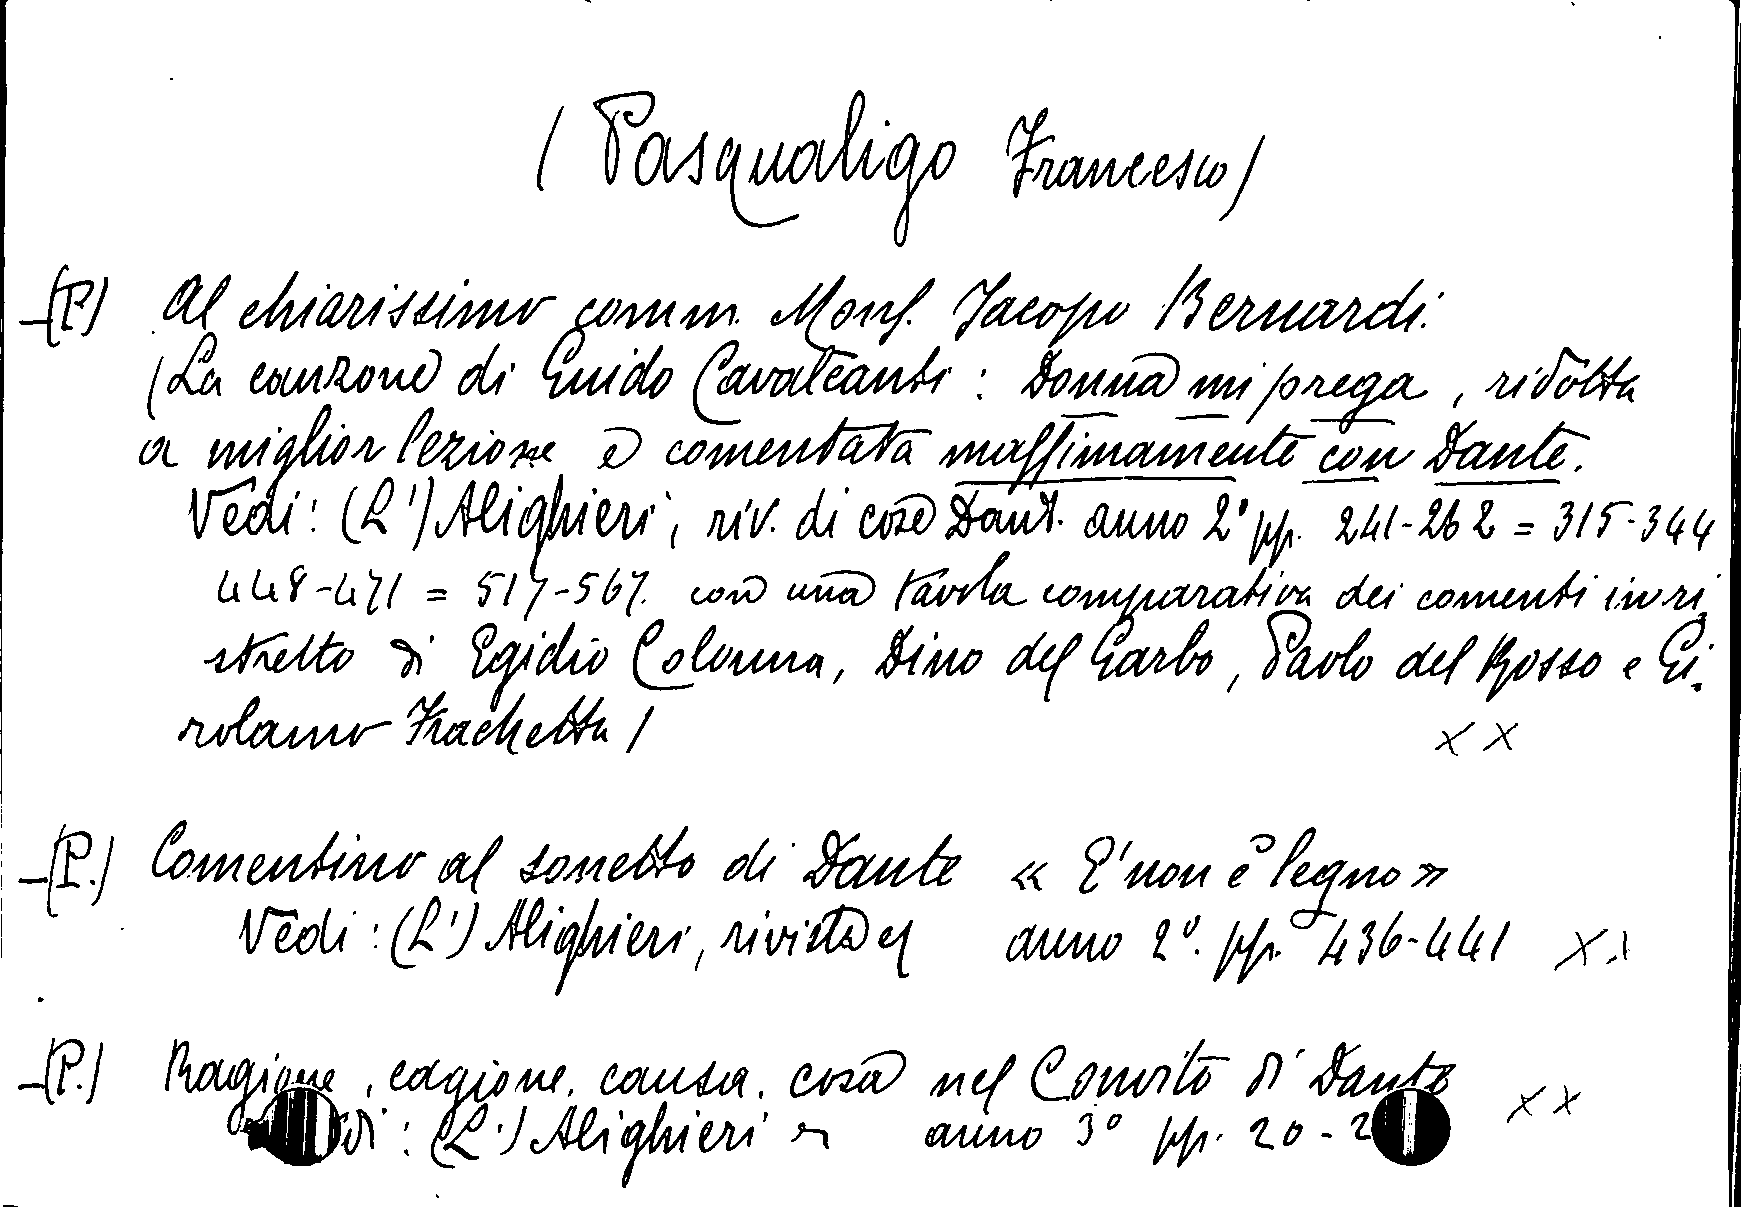 ( Pasqualigo Francesco )
_(P.) Al chiarissimo comm. Mons. Jacopo Bernardi.
(La canzone di Guido Cavalcanti : Donna mi prega , ridotta
a miglior lezione e comentata massimamente con Dante.
Vedi : (L') Alighieri , riv. di cose Dant. anno 2° pp. 241-262 = 315-344
448-471 = 517-567. con una tavola comparativa dei comenti in ri-
stretto di Egidio Colonna, Dino del Garbo , Paolo del Rosso e Gi-
rolamo Frachetta / x x
_(P.) Comentino al sonetto di Dante « E' non è legno »
Vedi : (L') Alighieri , rivista anno 2°. pp. 436-441 x x
_(P.) Ragione , cagione. causa. cosa nel Convito di Dante x x
: (L') Alighieri anno 3° pp. 20 -